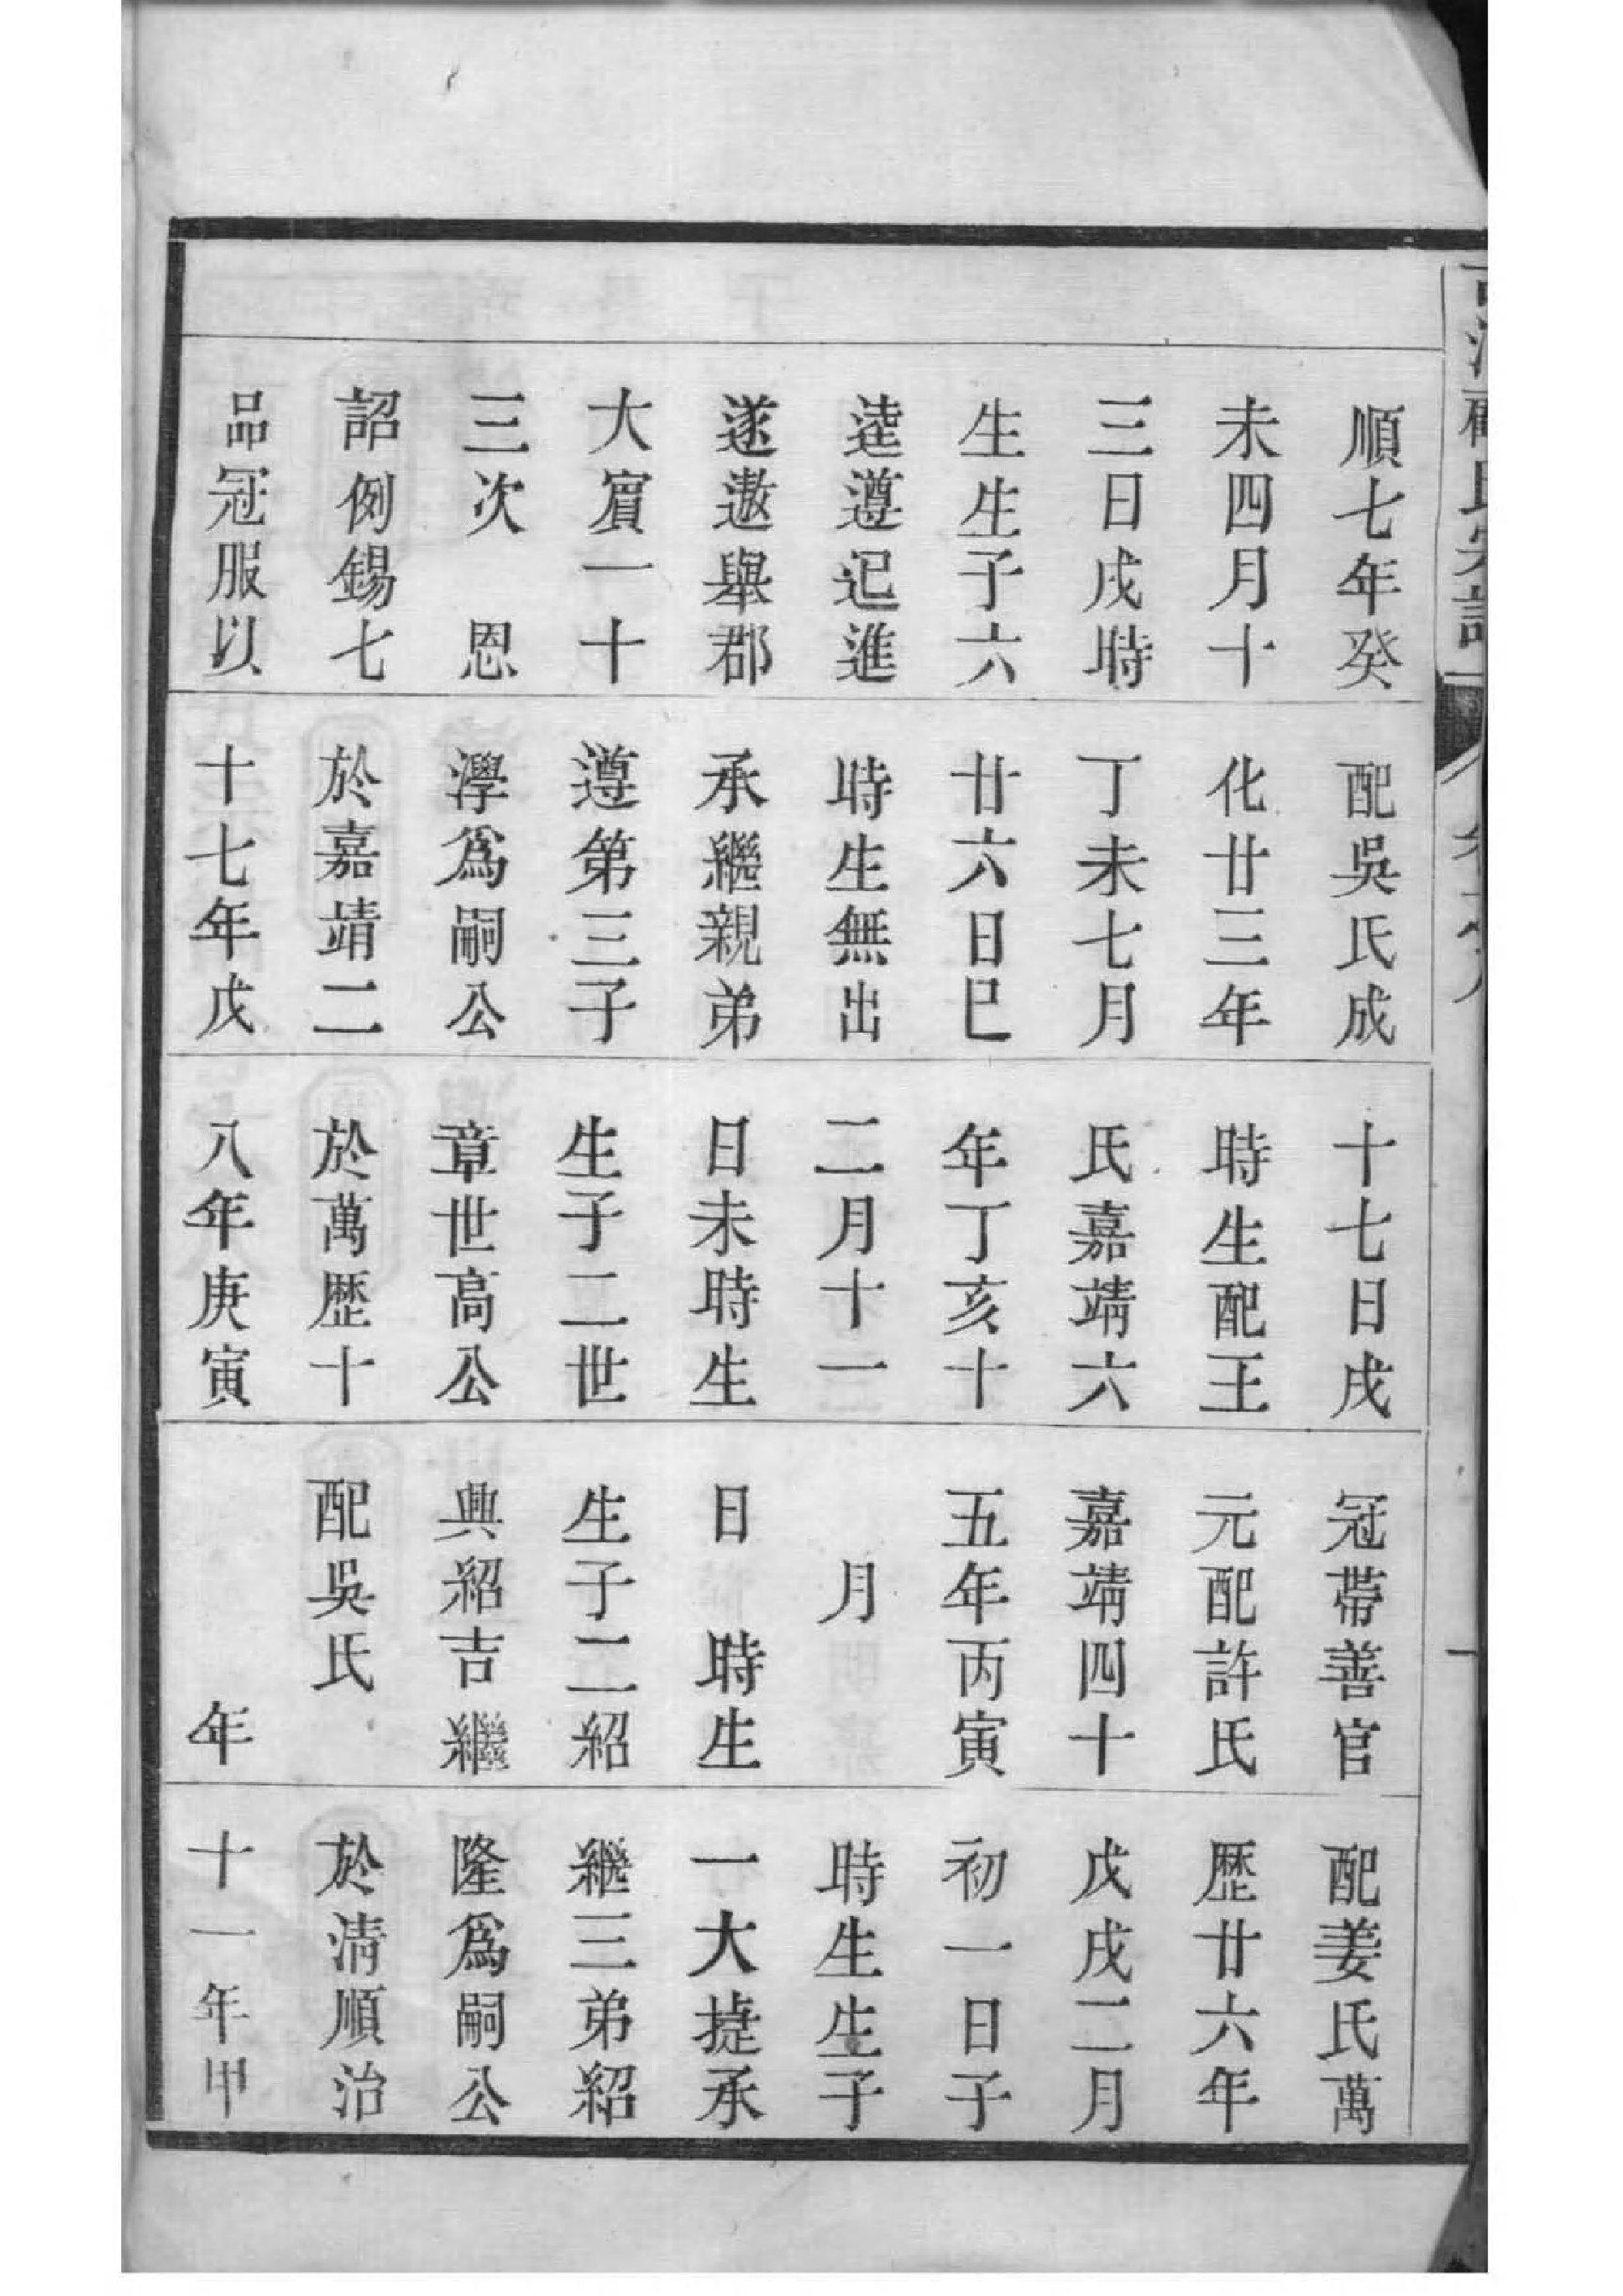 順七年癸
未四月十
三日戌時
生生子六
逵遵進
遂遨舉郡
大賔一十
三次　恩
詔例錫七
品冠服以
配吳氏成
化廿三年
丁未七月
廿六日巳
時生無出
承繼親弟
遵第三子
㶅爲嗣公
於嘉靖二
十七年戊
十七日戌
時生配王
氏嘉靖六
年丁亥十
二月十一
日未時生
生子二世
章世高公
於萬歷十
八年庚寅
冠帶善官
元配許氏
嘉靖四十
五年丙寅
月
日　時生
生子二紹
興紹吉繼
配吳氏
年
配姜氏萬
歷廿六年
戊戌二月
初一日子
時生生子
一大㨗承
繼三弟紹
隆爲嗣公
於清順治
十一年甲